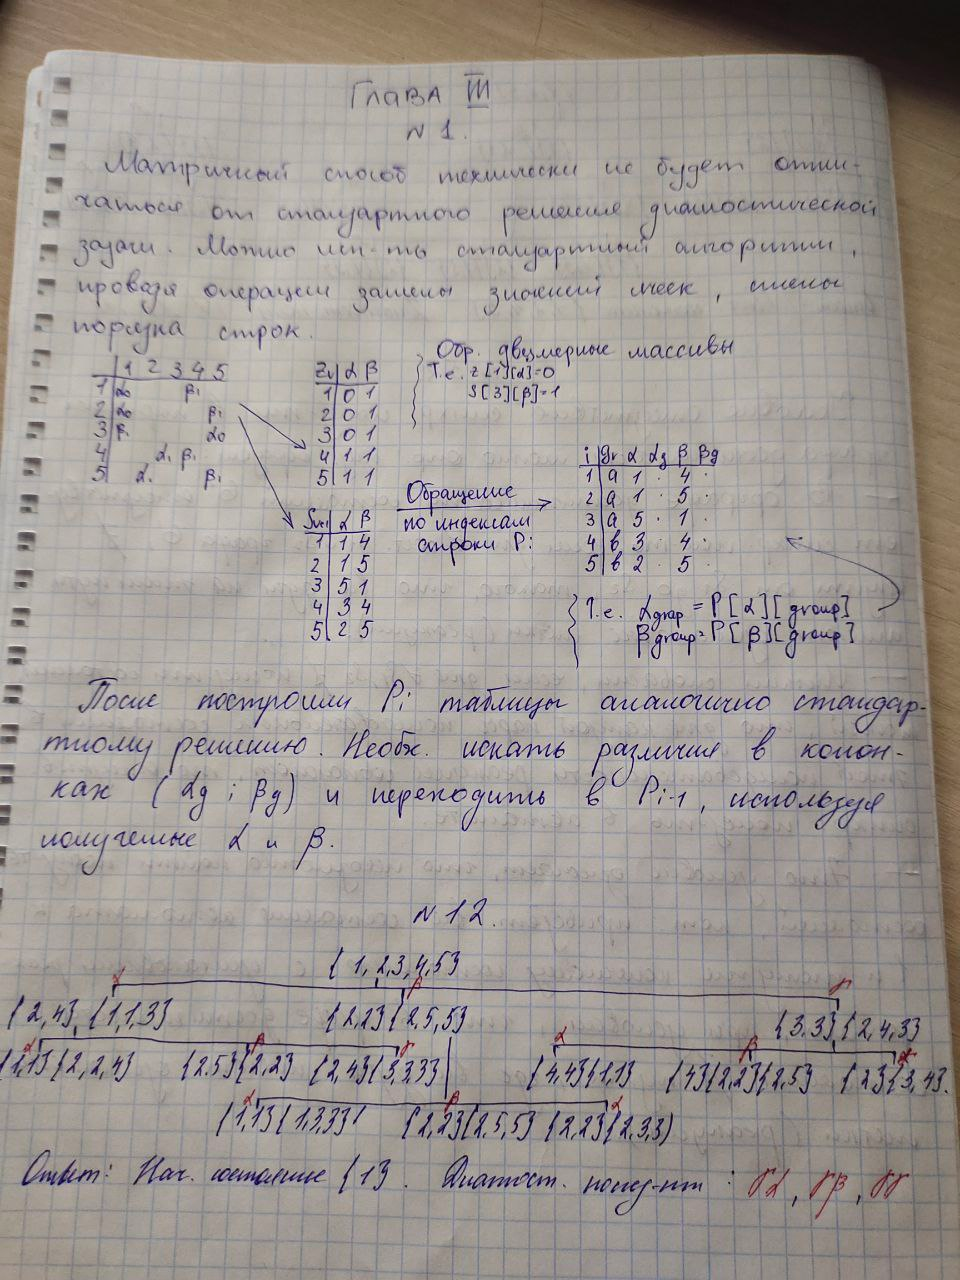 Глава III
N 1.
Матричный способ технически не будет отли-
чаться от стандартного решения диагностической
задачи. Можно исп-ть стандартный алгоритм,
проводя операции замены значений ячеек, смены
порядка строк.
Обр. двумерные массивы
Т.е. Z[1][α]=0
S[3][β]=1
1 2 3 4 5
1 α0 β1
2 α0 β1
3 β1 α0
4 α1 β1
5 α1 β1
Zν α β
1 0 1
2 0 1
3 0 1
4 1 1
5 1 1
Sν+1 α β
1 1 4
2 1 5
3 5 1
4 3 4
5 2 5
Обращение
по индексам
строки Pi
i gr α αg β βg
1 a 1 · 4 ·
2 a 1 · 5 ·
3 a 5 · 1 ·
4 b 3 · 4 ·
5 b 2 · 5 ·
Т.е. αgrap = P[α][group]
βgroup = P[β][group]
После построили Pi таблицы аналогично стандар-
тному решению. Необх. искать различия в колон-
ках (αg ; βg) и переходить в Pi-1, используя
полученные α и β.
N 12.
{1,2,3,4,5}
α β γ
{2,4}, {1,1,3} {2,2}{2,5,5} {3,3}{2,4,3}
α β γ α β γ
{1,1}{2,2,4} {2,5}{2,2} {2,4}{3,3,3} {4,4}{1,1} {4}{2,2}{2,5} {2}{3,4}.
α β α
{1,1}{1,3,3} {2,2}{2,5,5} {2,2}{2,3,3}
Ответ: Нач. состояние {1}. Диагност. послед-ти: γα, γβ, γγ